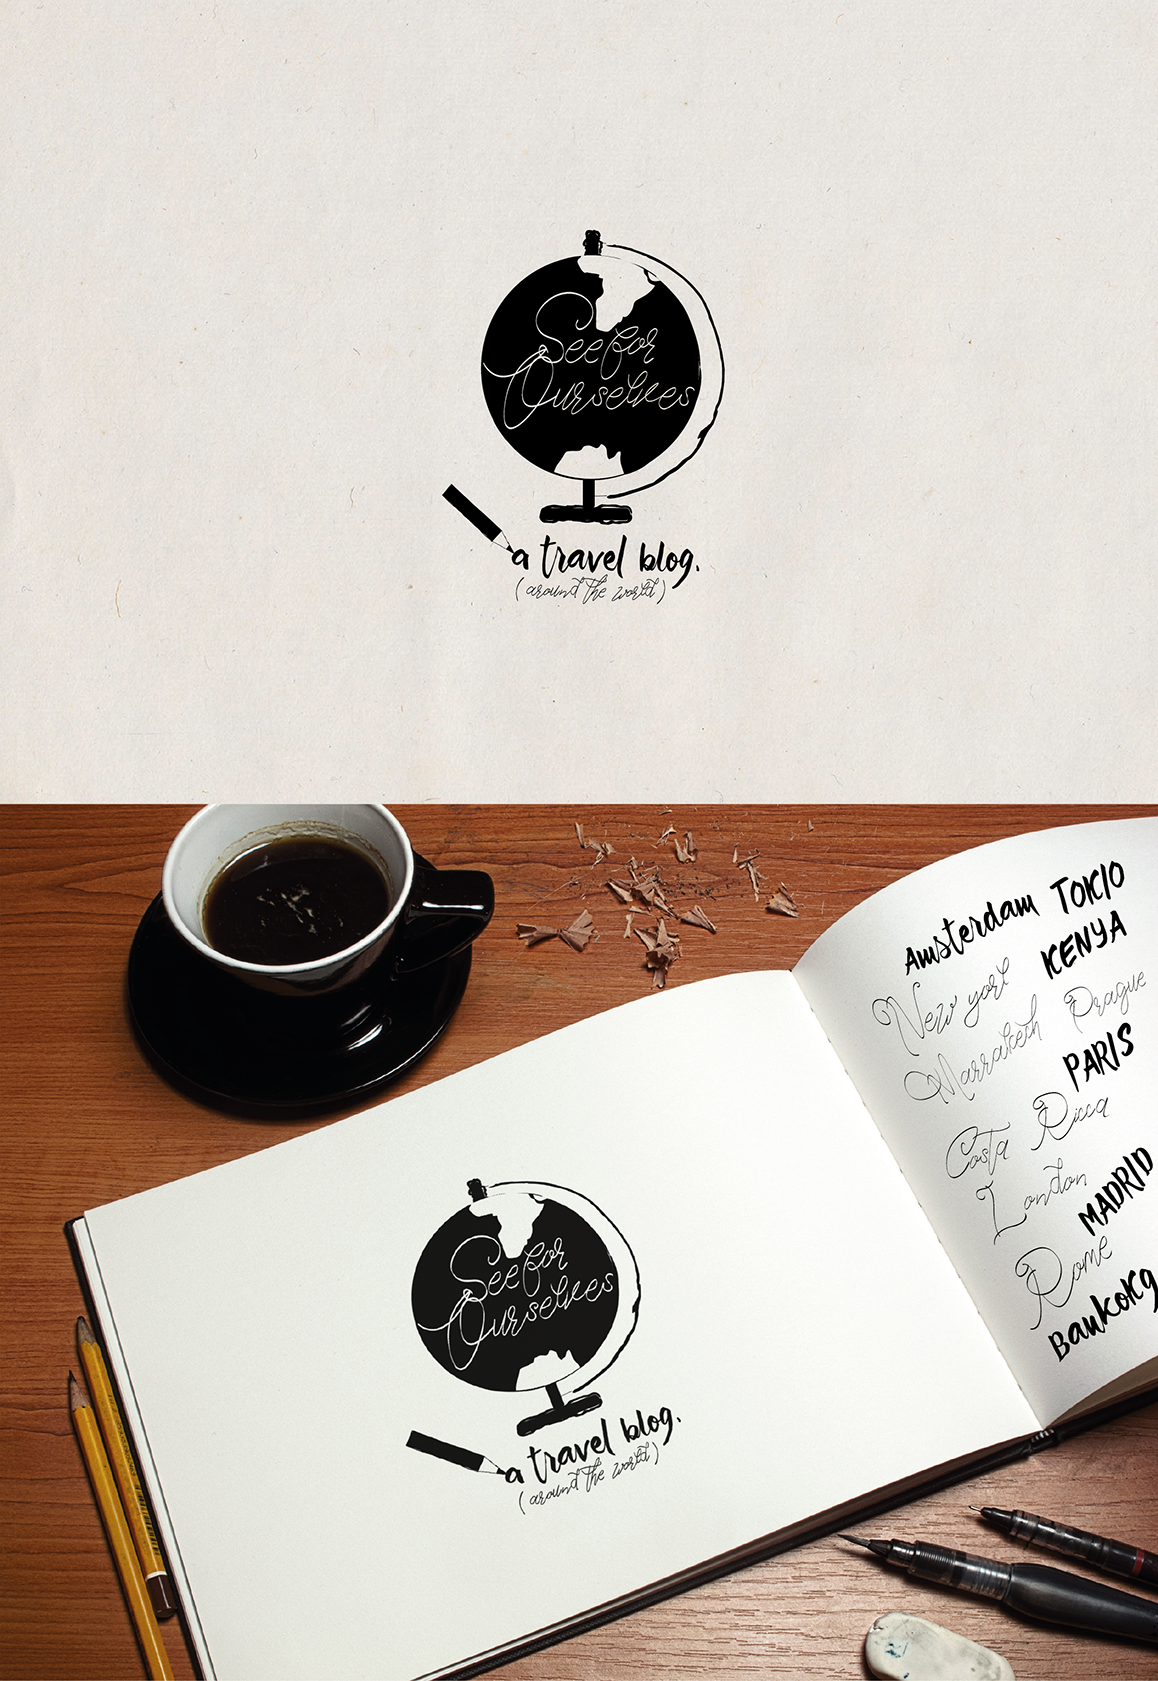 See for
Ourselves
a travel blog.
(around the world)
See for
Ourselves
a travel blog.
(around the world)
Amsterdam TOKIO
New york KENYA
Marrakech Prague
PARIS
Costa Ricca
London
MADRID
Rome
Baukokg